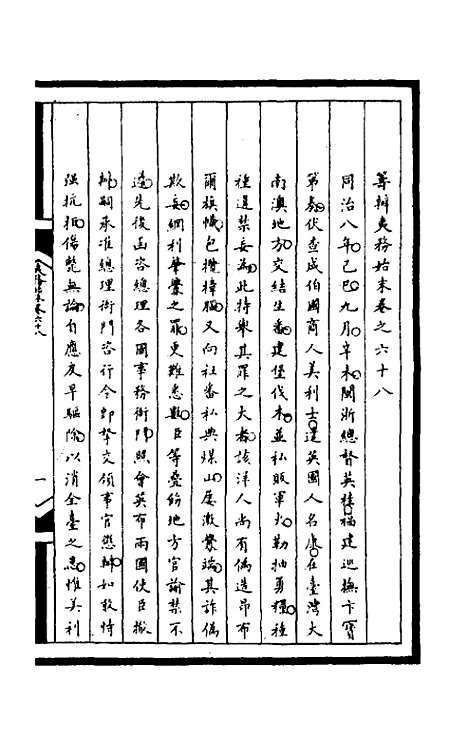 籌辦夷務始末卷之六十八
同治八年己巳九月辛未閩浙總督英桂福建巡撫卞寶
第奏伏查咸伯國商人美利士還英國人名康在臺灣大
南澳地方交結生番建堡伐木並私販軍火勒抽勇糧種
種違禁妄為此特舉其罪之大者該洋人尚有偽造昂布
爾旗幟包攬樟腦又向社番私典煤山屢激釁端其詐偽
欺妄網利肇釁之罪更難悉數臣等疊飭地方官諭禁不
遵先後函咨總理各國事務衙門照會英布兩國使臣撤
辦嗣承准總理衙門咨行令即拏交領事官懲辦如敢恃
强抗拒傷斃無論自應及早驅除以消全臺之患惟美利
一